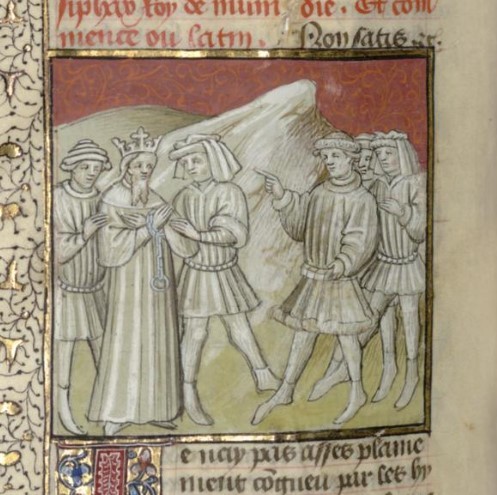 siphax roy de numi die. Et com
mence ou latin. Non satis ꝛc.
e nay pas asses plaine
ment cõgneu par les hy